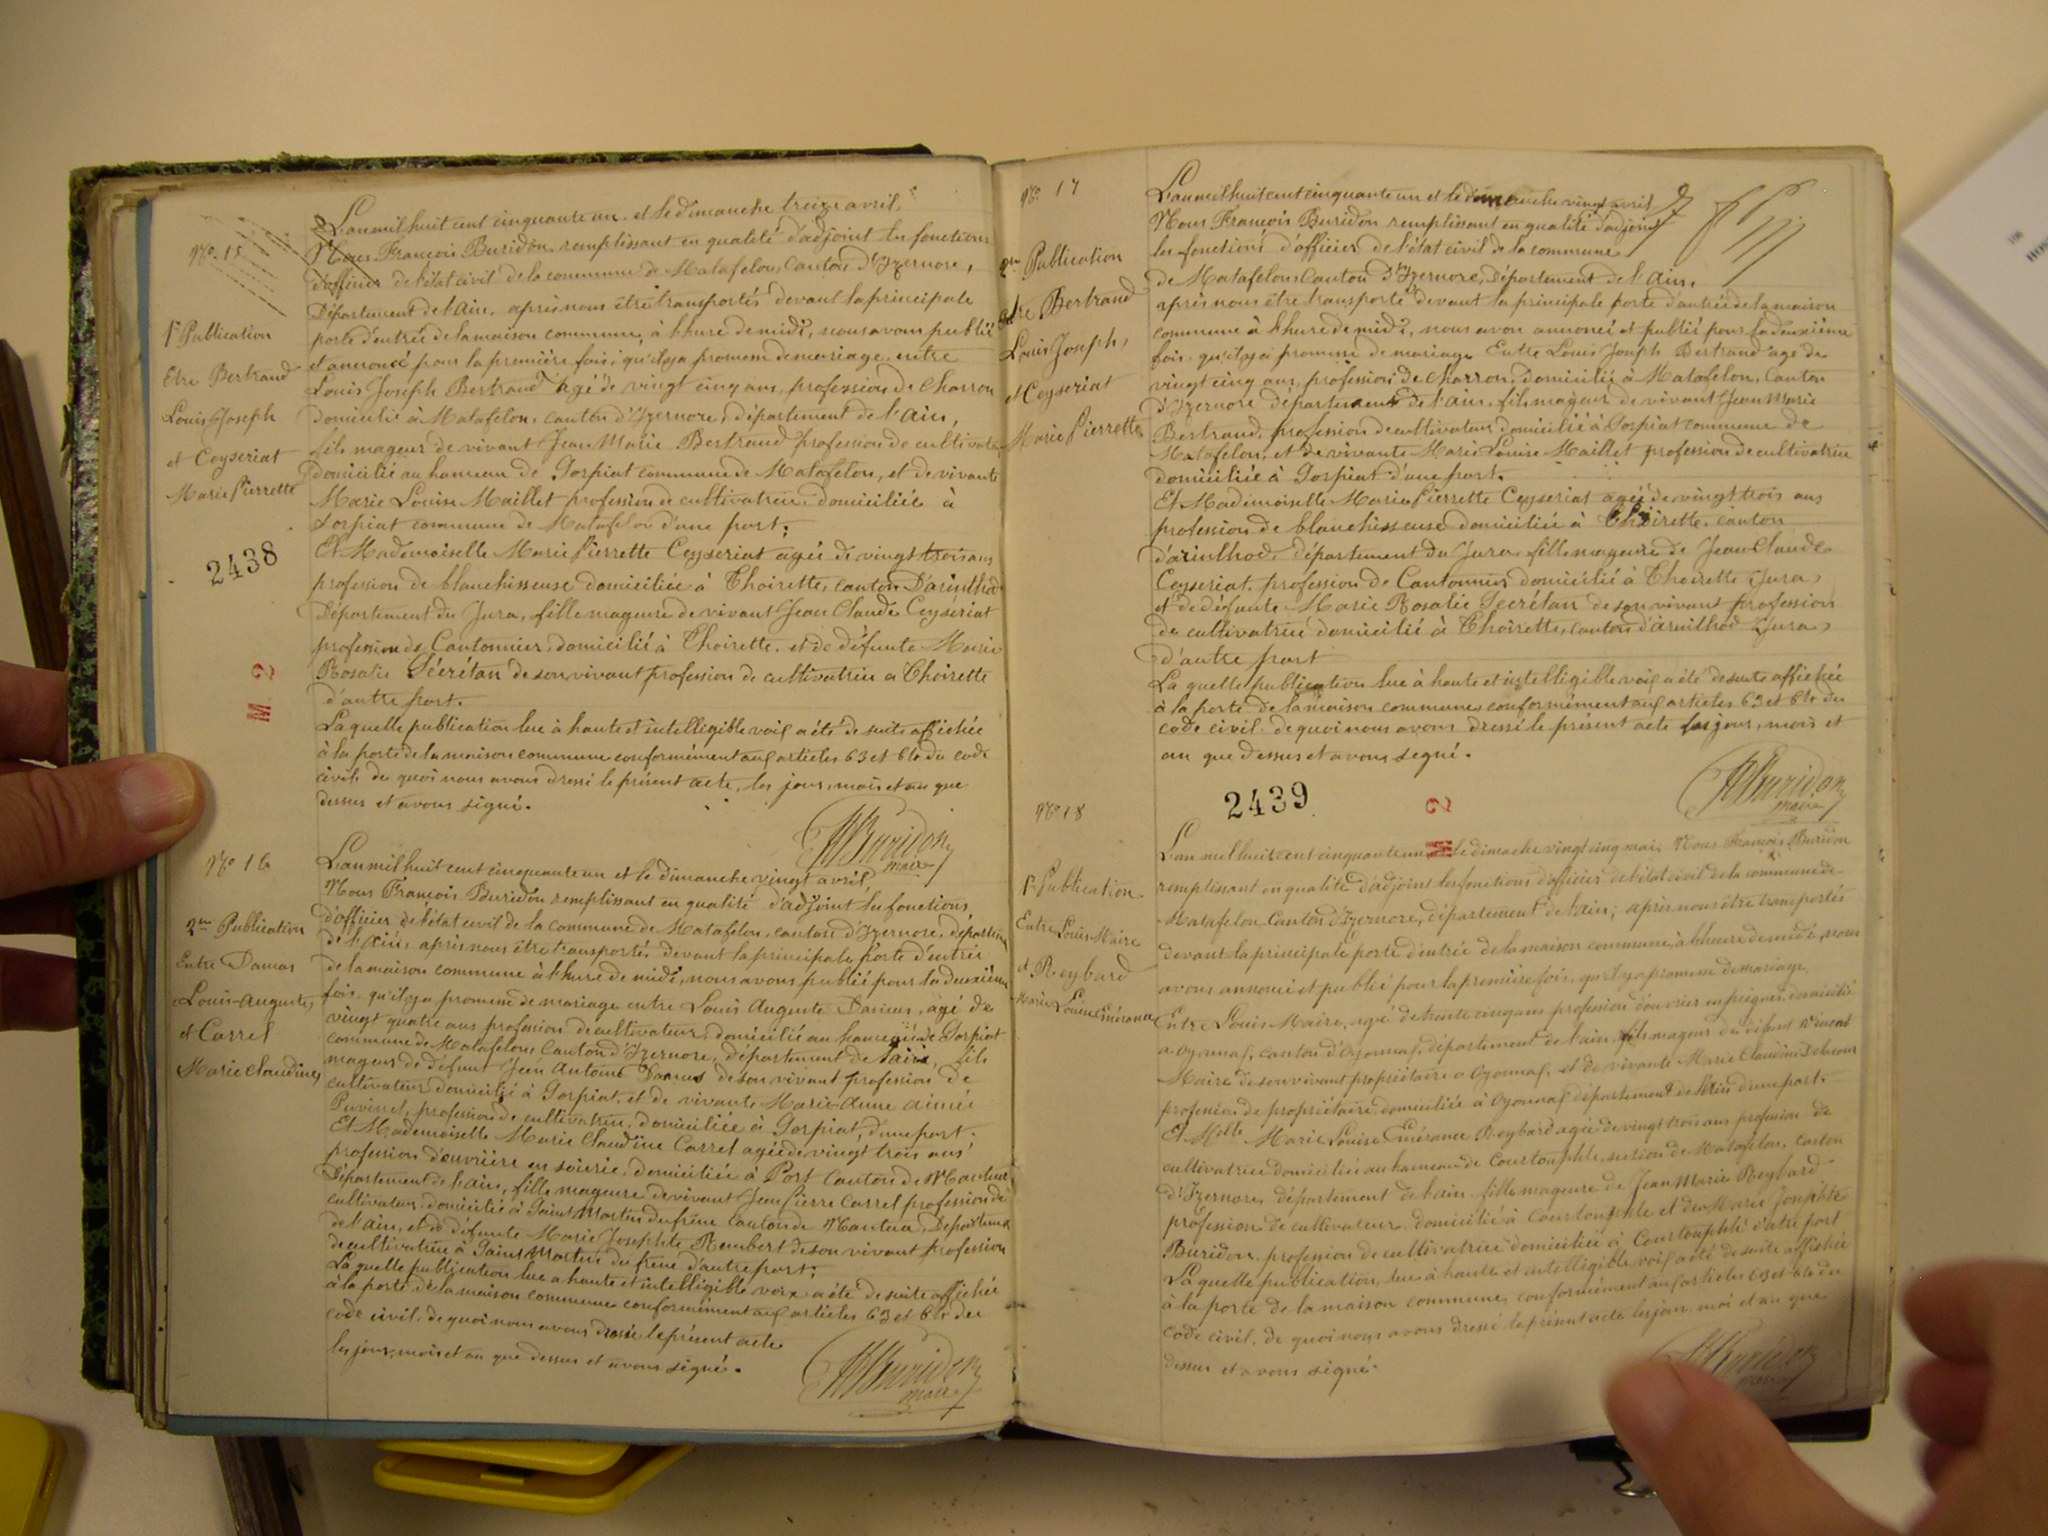 No. 15
1re Publication
Etre Bertrand
Louis Joseph
et Ceyseriat
Marie Pierrette
2438
M 2
L'an mil huit cent cinquante un et le dimanche treize avril,
Nous François Buridon remplissant en qualité d'adjoint les fonctions
d'officier de l'état civil de la commune de Matafelon, Canton d'Izernore,
Département de l'Ain, après nous être transportés devant la principale
porte d'entrée de la maison commune, à l'hure de midi, nous avons publié
et annoncé pour la première fois, qu'il y a promesse de mariage entre
Louis Joseph Bertrand agé de vingt cinq ans, profession de Charron
domicilié à Matafelon, canton d'Izernore, département de l'Ain,
fils mageur de vivant Jean Marie Bertrand profession de cultivateur
domicilié au hameau de Sorpiat commune de Matafelon, et de vivante
Marie Louise Maillet profession de cultivatrice, domiciliée à
Sorpiat commune de Matafelon d'une part;
Et Mademoiselle Marie Pierrette Ceyseriat agée de vingt trois ans
profession de blanchisseuse domiciliée à Thoirette, canton D'arinthod
Département du Jura, fille mageure de vivant Jean Claude Ceyseriat
profession de Cantonnier, domicilié à Thoirette, et de défunte Marie
Rosalie Sécrétan de son vivant profession de cultivatrice a Thoirette
d'autre part.
La quelle publication lue à haute et intelligible voix a été de suite affichée
à la porte de la maison commune conformément aux articles 63 et 64 du code
civil, de quoi nous avons dressé le présent acte, les jour, mois et an que
dessus et avons signé.
Buridon
maire
No 16
2me Publication
Entre Damas
Louis Auguste,
et Carrel
Marie Claudine,
L'an mil huit cent cinquante un et le dimanche vingt avril,
Nous François Buridon remplissant en qualité d'adjoint les fonctions
d'officier de l'état civil de la commune de Matafelon, canton d'Izernore, départem
de l'Ain, après nous être transportés devant la principale porte d'entrée
de la maison commune à l'hure de midi, nous avons publié pour la deuxième
fois qu'il y a promesse de mariage entre Louis Auguste Damas, agé de
vingt quatre ans profession de cultivateur, domicilié au hameau de Sorpiat
commune de Matafelon, Canton d'Izernore, département de l'ain, fils
mageur de défunt Jean Antoine Damas de son vivant profession de
cultivateur domicilié à Sorpiat, et de vivante Marie Anne aimée
Puvinel, profession de cultivatrice, domiciliée à Sorpiat, d'une part.
Et Mademoiselle Marie Claudine Carrel agée de vingt trois ans
profession d'ouvrière en soierie, domiciliée à Port Canton de Nantua,
Département de l'ain, fille mageure de vivant Jean Pierre Carrel profession de
cultivateur, domicilié à Saint Martin du frêne canton de Nantua, Départemen
de l'ain, et de défunte Marie Josephte Rembert de son vivant profession
de cultivatrice à Saint Martin du frêne d'autre part;
La quelle publication lue a haute et intelligible voix a été de suite affichée
à la porte de la maison commune conformément aux articles 63 et 64 du
code civil, de quoi nous avons dressé le présent acte
les jour, mois et an que dessus et avons signé.
Buridon
maire
No. 17
2me Publication
entre Bertrand
Louis Joseph,
et Ceyseriat
Marie Pierrette
L'an mil huit cent cinquante un et le dimanche vingt avril
Nous François Buridon remplissant en qualité d'adjoint
les fonctions d'officier de l'état civil de la commune
de Matafelon Canton d'Izernore, Département de l'Ain,
après nous être transporté devant la principale porte d'entrée de la maison
commune à l'hure de midi, nous avon annoncé et publié pour la deuxième
fois qu'il y a promesse de mariage Entre Louis Joseph Bertrand agé de
vingt cinq ans, profession de charron, domicilié à Matafelon, Canton
d'Izernore département de l'ain, fils mageur de vivant Jean Marie
Bertrand, profession de cultivateur domicilié à Sorpiat commune de
Matafelon, et de vivante Marie Louise Maillet profession de cultivatrice
domiciliée à Sorpiat d'une part.
Et Mademoiselle Marie Pierrette Ceyseriat agée de vingt trois ans
profession de blanchisseuse domiciliée à Thoirette, canton
d'arinthod, département du Jura, fille mageure de Jean Claude
Ceyseriat, profession de Cantonnier domicilié à Thoirette (Jura)
et de défunte Marie Rosalie Secrétan de son vivant profession
de cultivatrice domicilié à Thoirette, canton d'arinthod (Jura)
d'autre part
La quelle publication lue à haute et intelligible voix a été de suite affichée
à la porte de la maison commune, conformément aux articles 63 et 64 du
code civil, de quoi nous avons dressé le présent acte les jour, mois et
an que dessus et avons signé.
Buridon
maire
2439
M 2
No 18
1re Publication
Entre Louis Maire
et Reybard
Marie Louise Emérance
L'an mil huit cent cinquante un et le dimache vingt cinq mai, Nous François Buridon
remplissant en qualité d'adjoint les fonctions d'officier de l'état civil de la commune de
Matafelon Canton d'Izernore, département de l'ain; après nous être transportés
devant la principale porte d'entrée de la maison commune, à l'heure de midi, nous
avons annoncé et publié pour la première fois, qu'il y a promesse de mariage,
Entre Louis Maire, agé de trente cinq ans profession d'ouvrier en peignes, domicilié
a Oyonnax, canton d'Oyonnax, département de l'ain, fils mageur de défunt Vincent
Maire de son vivant propriétaire a Oyonnax, et de vivante Marie Claudine
profession de propriétaire domiciliée à Oyonnax département de l'Ain d'une part.
Et Melle Marie Louise Emérance Reybard agée de vingt trois ans profession de
cultivatrice domiciliée au hameau de Courtouphle, section de Matafelon, canton
d'Izernore, département de l'ain fille mageure de Jean Marie Reybard
profession de cultivateur, domicilié à Courtouphle et de Marie Josephte
Buridon, profession de cultivatrice domiciliée à Courtouphle d'atre part
La quelle publication, lue à haute et intelligible voix a été de suite affichée
à la porte de la maison commune, conformément aux articles 63 et 64 du
code civil, de quoi nous avons dressé le présent acte les jour, moi et an que
dessus et avons signé.
Buridon
maire